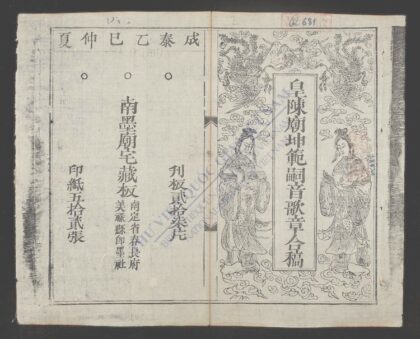 R. 631
皇陳廟坤範嗣音歌章合稿
成泰乙巳仲夏
刊板貳拾柒片
南墨廟宅藏板
南定省春長府
美祿縣即墨社
印紙五拾貳張